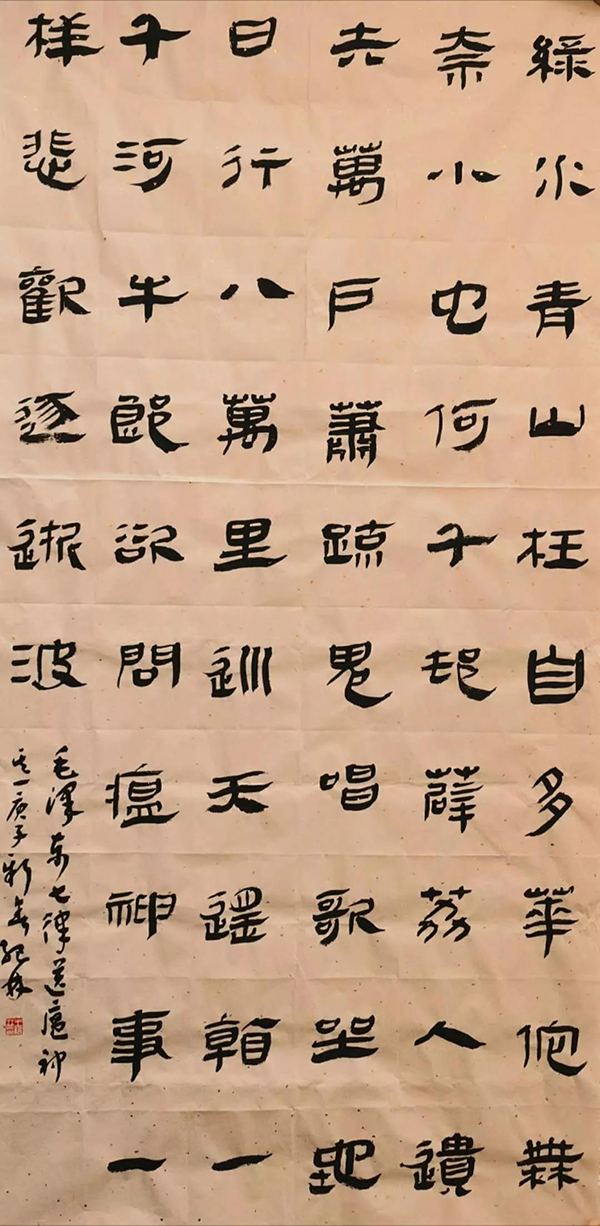 綠水青山枉自多華佗無
奈小虫何千邨薜荔人遺
矢萬戶蕭疏鬼唱歌坐地
日行八萬里巡天遙看一
千河牛郎欲問瘟神事一
樣悲歡逐逝波
毛澤東七律送瘟神
其一庚子新春